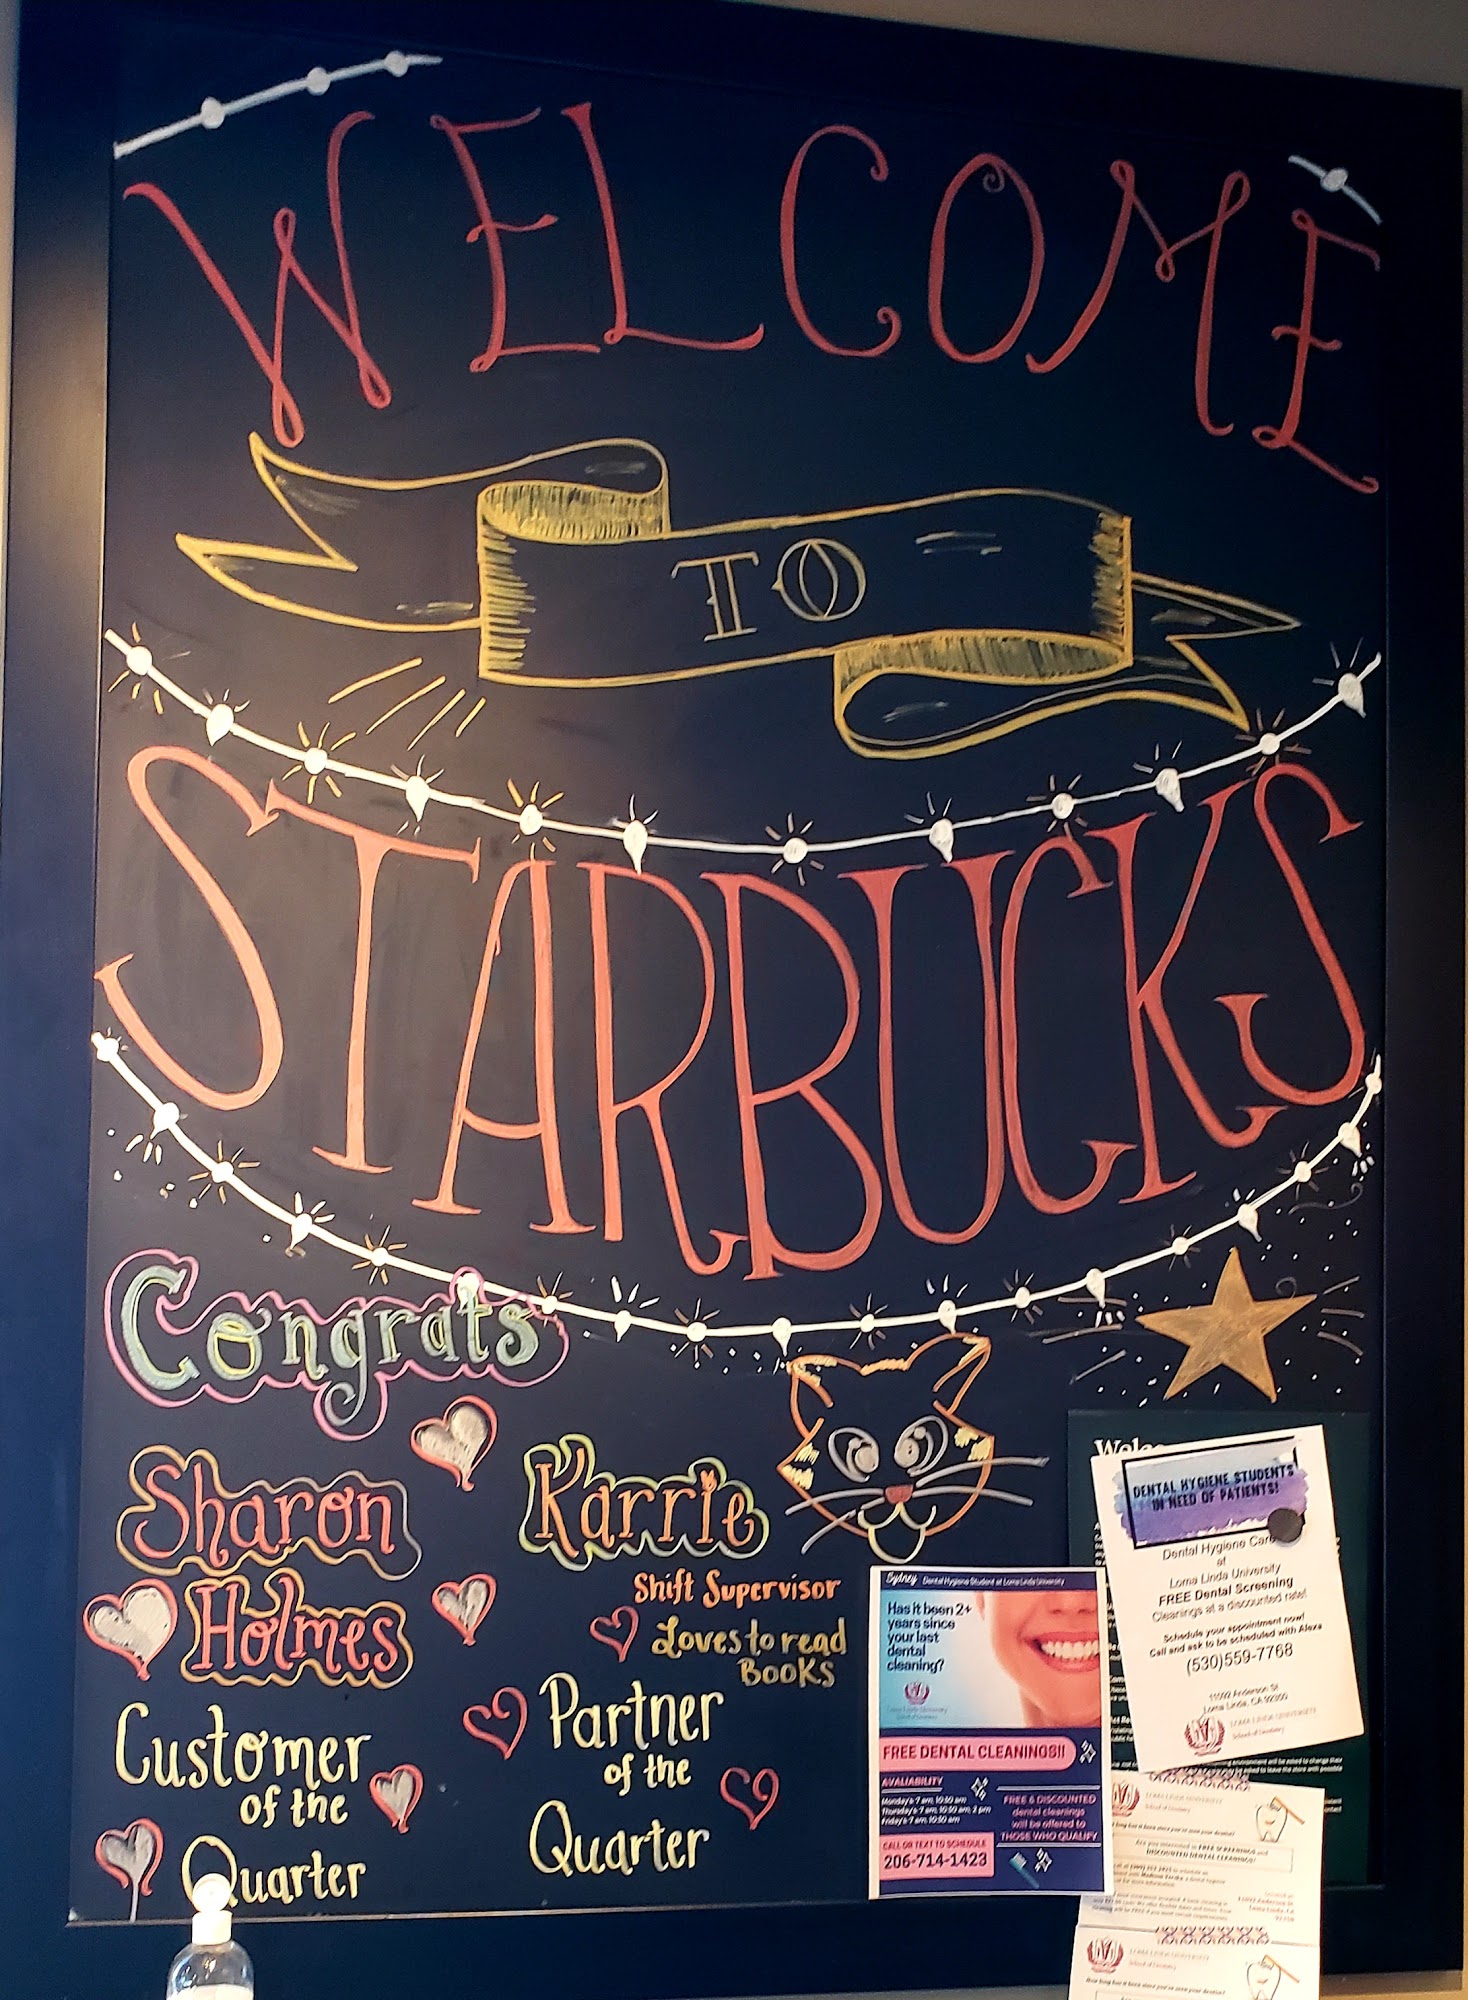 WELCOME
TO
STARBUCKS
Congrats
Sharon
Holmes
Customer
of the
Quarter
Karrie
Shift Supervisor
Loves to read
BOOKS
Partner
of the
Quarter
Sydney Dental Hygiene Student at Loma Linda University
Has it been 2+
years since
your last
dental
cleaning?
FREE DENTAL CLEANINGS!!
AVALIABILITY
Monday's 7 am; 10:30 am
Thursday's 7 am; 10:30 am; 2 pm
Friday's 7 am; 10:30 am
FREE & DISCOUNTED
dental cleanings
will be offered to
THOSE WHO QUALIFY
CALL OR TEXT TO SCHEDULE
206-714-1423
DENTAL HYGIENE STUDENTS
IN NEED OF PATIENTS!
Dental Hygiene Care
at
Loma Linda University
FREE Dental Screening
Cleanings at a discounted rate!
Schedule your appointment now!
Call and ask to be scheduled with Alexa
(530)559-7768
11092 Anderson St
Loma Linda, CA 92350
LOMA LINDA UNIVERSITY
School of Dentistry
LOMA LINDA UNIVERSITY
School of Dentistry
Are you interested in FREE SCREENINGS and
DISCOUNTED DENTAL CLEANINGS?
LOMA LINDA UNIVERSITY
School of Dentistry